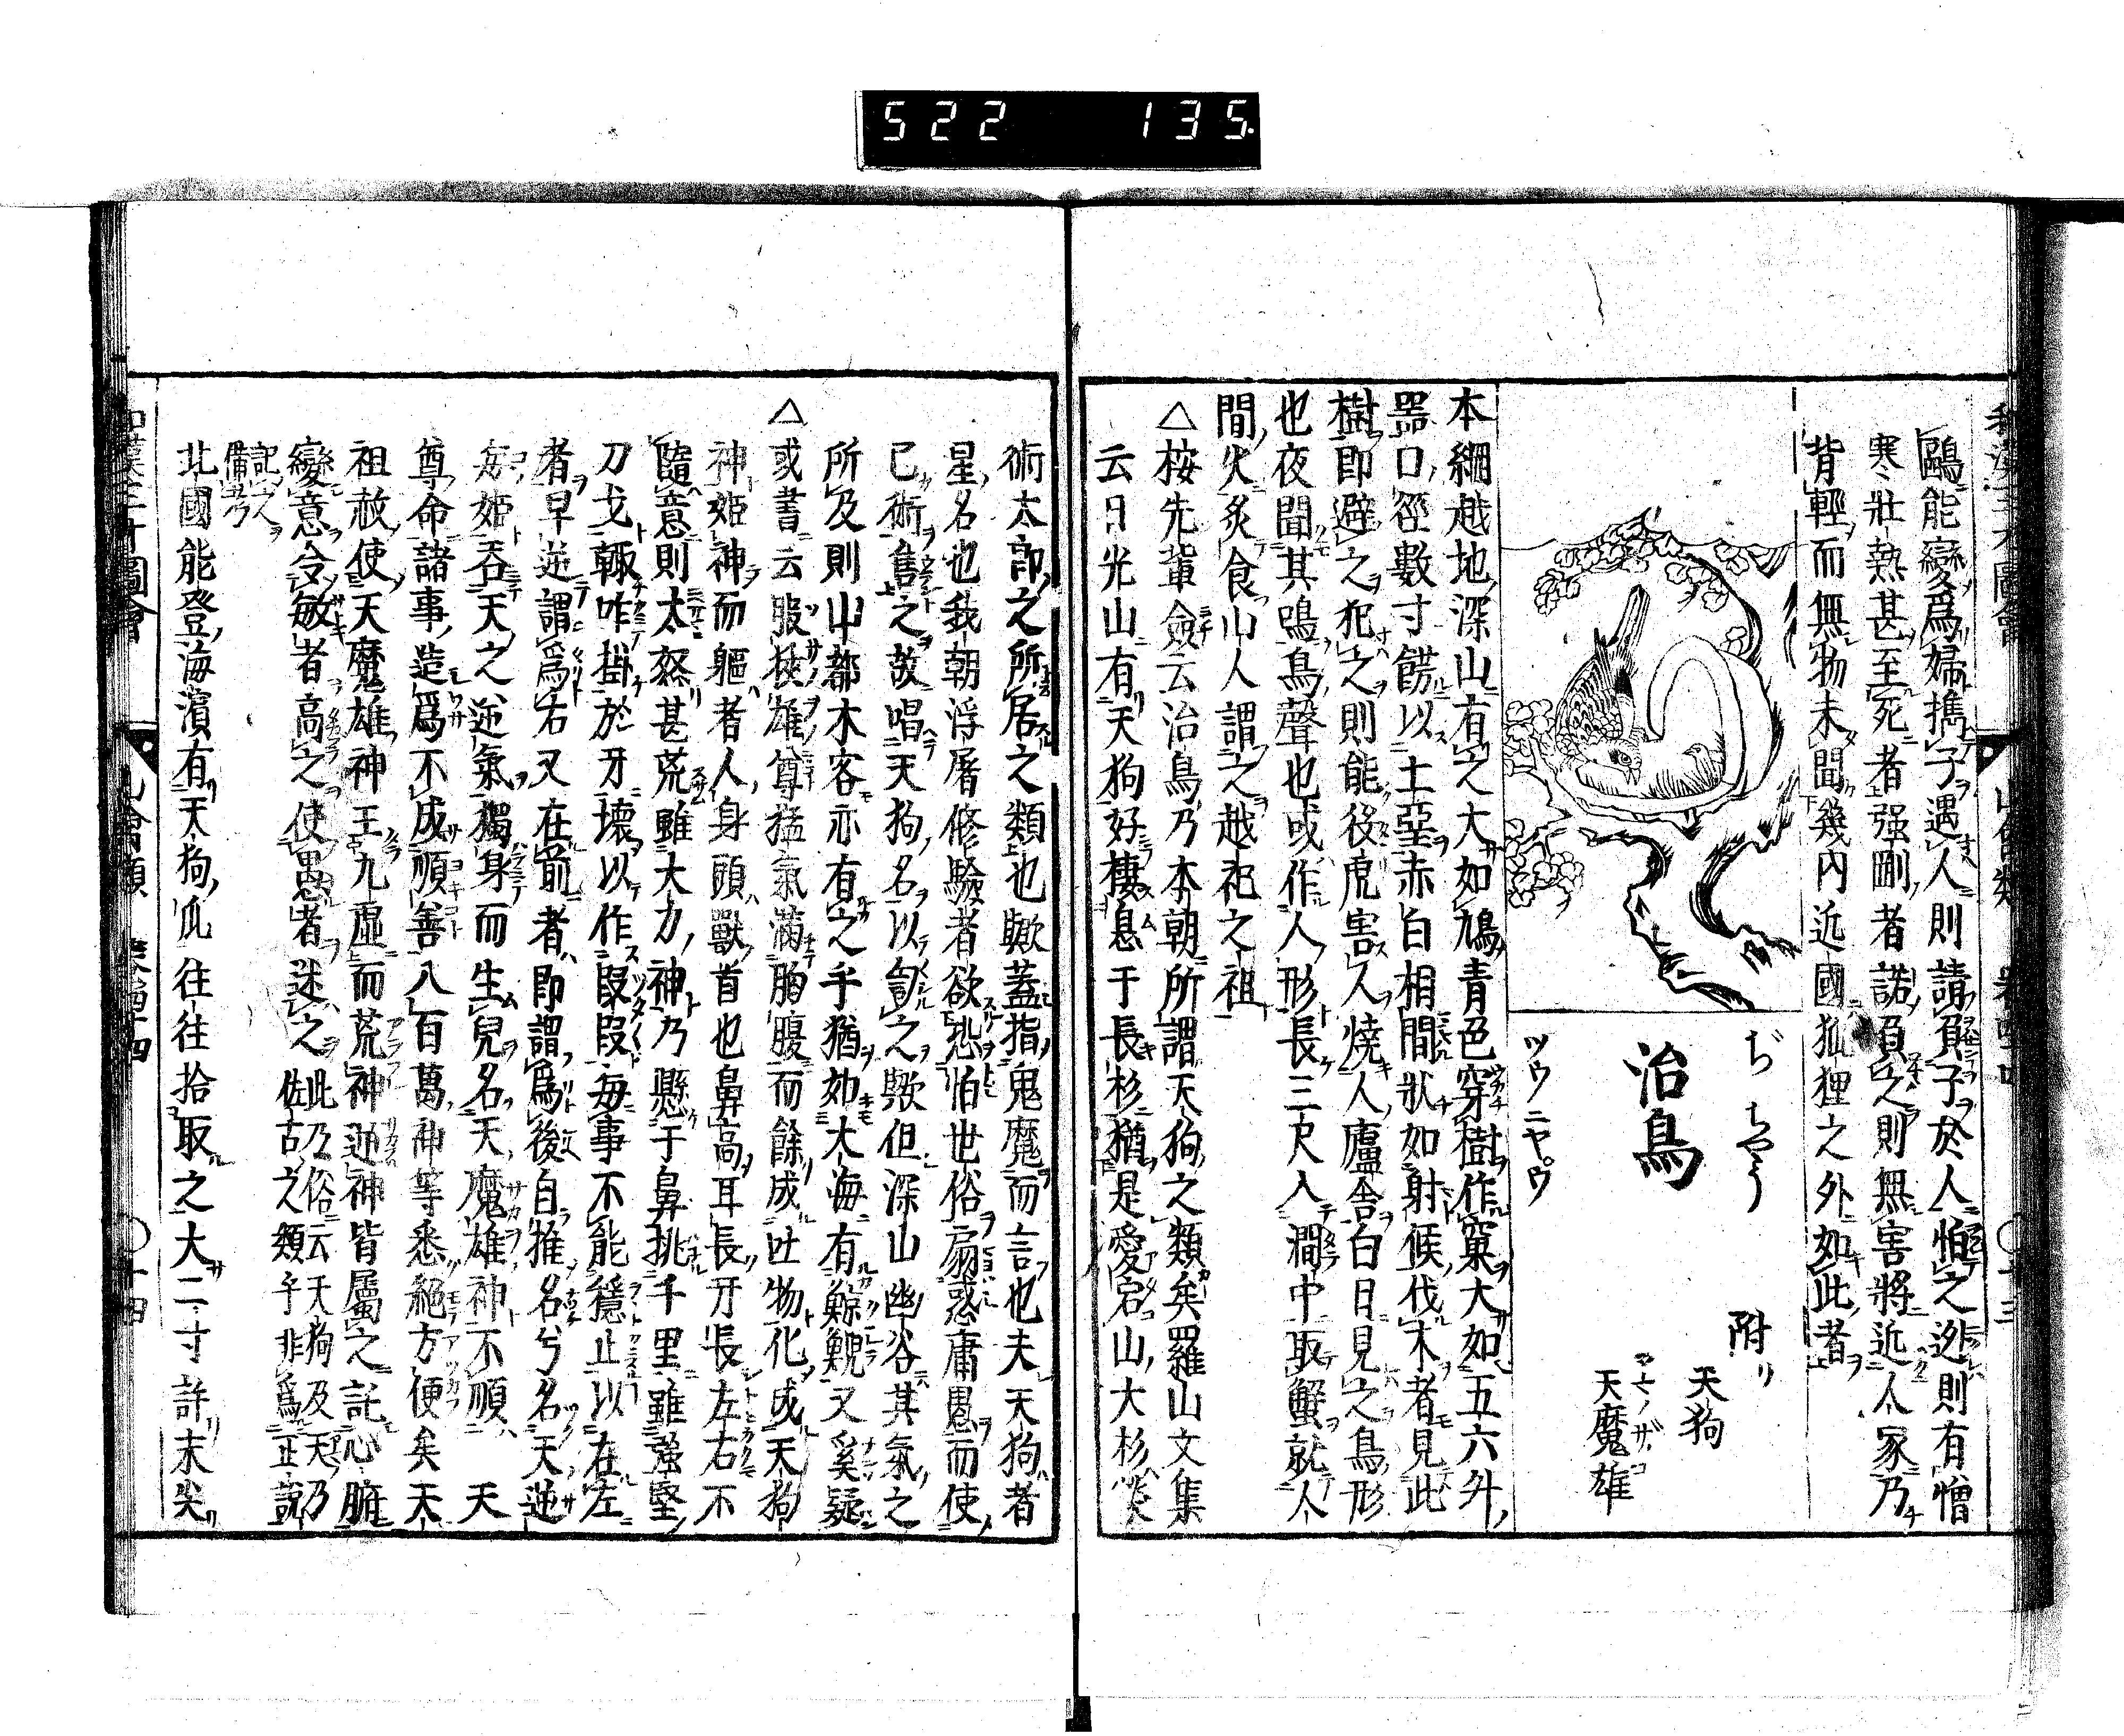 522 135
和漢三才圖會 山禽類 卷四十四 〇十三
鷗能變爲婦擕子遇人則請負子於人怕之迯則有憎
寒壯熱甚至死者强剛者諾負之則無害將近人家乃
背輕而無物未聞幾内近國狐狸之外如此者
ぢちやう
治鳥
ツウニヤ゚ウ
附リ
天狗
アマノザコ
天魔雄
本綱越地深山有之大如鳩青色穿樹作窠大如五六升
噐口徑數寸餝以土堊赤白相間狀如射候伐木者見此
樹即避之犯之則能役虎害人燒人廬舎白日見之鳥形
也夜聞其鳴鳥聲也或作人形長三尺入澗中取蟹就人
間火炙食山人謂之越祀之祖
△按先軰僉云治鳥乃本朝所謂天狗之類矣羅山文集
云日光山有天狗好棲息于長杉猶是愛宕山大杉
術太郎之所居之類也歟蓋指鬼魔而言也夫天狗者
星名也我朝浮屠修驗者欲恐怕世俗扇惑庸愚而使
已術售之故唱天狗名以訇之歟但深山幽谷其氣之
所及則山都木客亦有之乎猶如大海有鯨鯢又奚疑
△或書云服狹雄尊猛氣滿胸腹而餘成吐物化成天狗
神姫神而軀者人身頭獸首也鼻高耳長牙長左右不
隨意則太怒甚荒雖大力神乃懸于鼻挑千里雖强堅
刀戈輙咋掛於牙壞以作叚叚毎事不能穩止以在左
者早逆謂爲右又在前者即謂爲後自推名兮名天逆
毎姫吞天之逆氣獨身而生兒名天魔雄神不順 天
尊命諸事造爲不成順善八百萬神等悉絕方便矣天
祖赦使天魔雄神王九虛而荒神逆神皆屬之託心腑
變意令敏者高之使愚者迷之 此乃俗云天狗及天乃
佐古之類乎非爲正說
記之
備考
北國能登海濱有天狗爪往往拾取之大二寸許末尖
和漢三才圖會 山禽類 卷四十四 〇十四